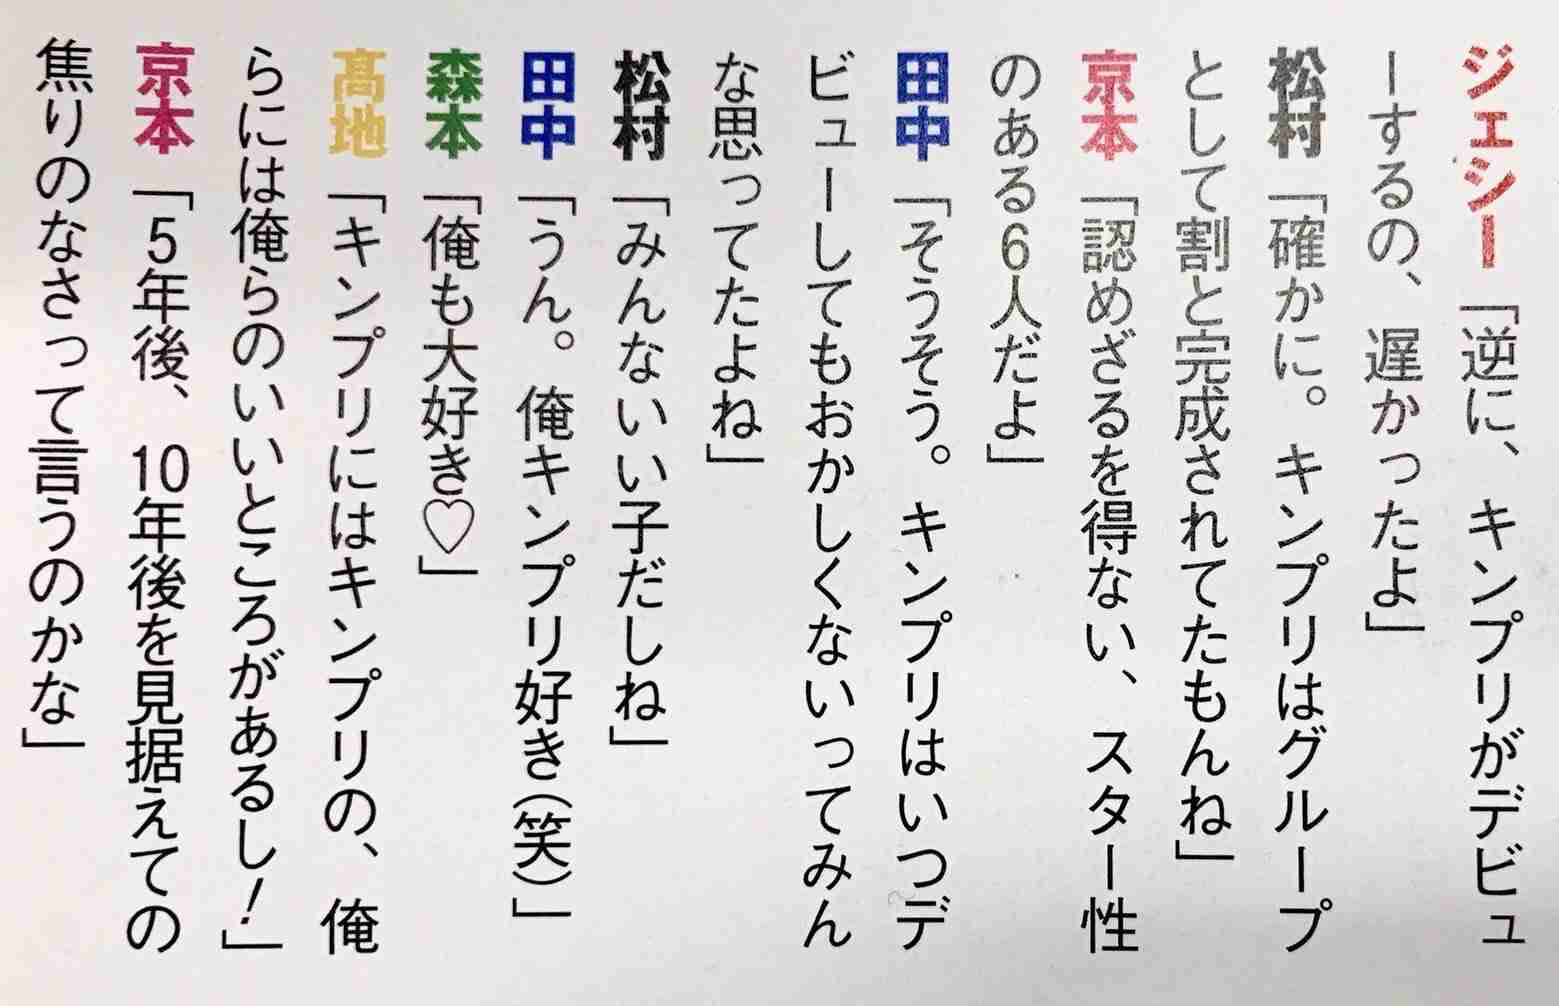 ジェシー「逆に、キンプリがデビュ
ーするの、遅かったよ」
松村「確かに。キンプリはグループ
として割と完成されてたもんね」
京本「認めざるを得ない、スター性
のある6人だよ」
田中「そうそう。キンプリはいつデ
ビューしてもおかしくないってみん
な思ってたよね」
松村「みんないい子だしね」
田中「うん。俺キンプリ好き(笑)」
森本「俺も大好き♡」
髙地「キンプリにはキンプリの、俺
らには俺らのいいところがあるし!」
京本「5年後、10年後を見据えての
焦りのなさって言うのかな」